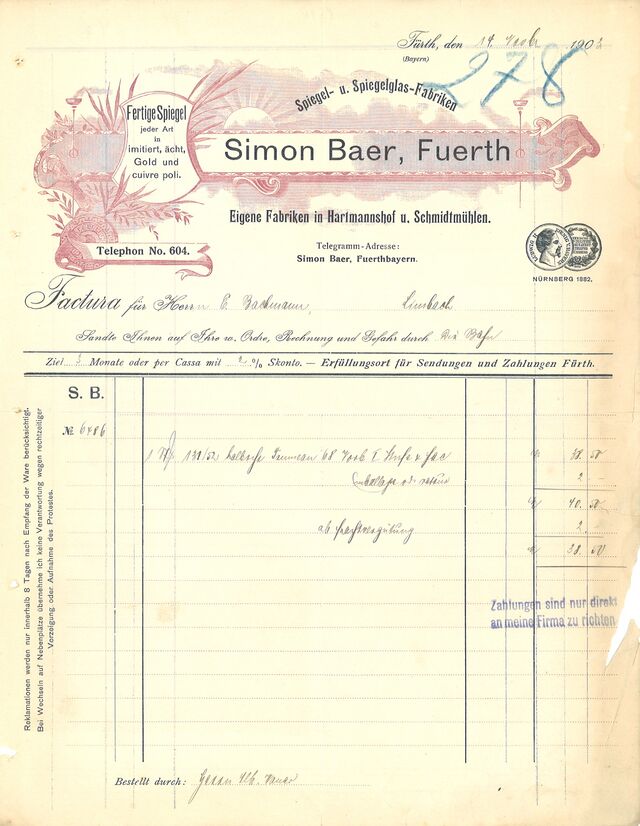 Fürth, den 14. Novbr. 190
(Bayern)
278
Spiegel- u. Spiegelglas-Fabriken
Fertige Spiegel
jeder Art
in
imitiert, ächt,
Gold und
cuivre poli.
Simon Baer, Fuerth
Eigene Fabriken in Hartmannshof u. Schmidtmühlen.
Telephon No. 604.
Telegramm-Adresse:
Simon Baer, Fuerthbayern.
NÜRNBERG 1882.
Factura für Herrn C. Bachmann, Limbach
Sandte Ihnen auf Ihre w. Ordre, Rechnung und Gefahr durch die Bahn
Ziel 3 Monate oder per Cassa mit 2 % Skonto. — Erfüllungsort für Sendungen und Zahlungen Fürth.
S. B.
№ 6486
1 131/52 68 I 38.50
Emballage 2.-
40.50
ab Frachtvergütung 2.-
38.50
Zahlungen sind nur direkt
an meine Firma zu richten
Reklamationen werden nur innerhalb 8 Tagen nach Empfang der Ware berücksichtigt.
Bei Wechseln auf Nebenplätze übernehme ich keine Verantwortung wegen rechtzeitiger
Vorzeigung oder Aufnahme des Protestes.
Bestellt durch: Herrn